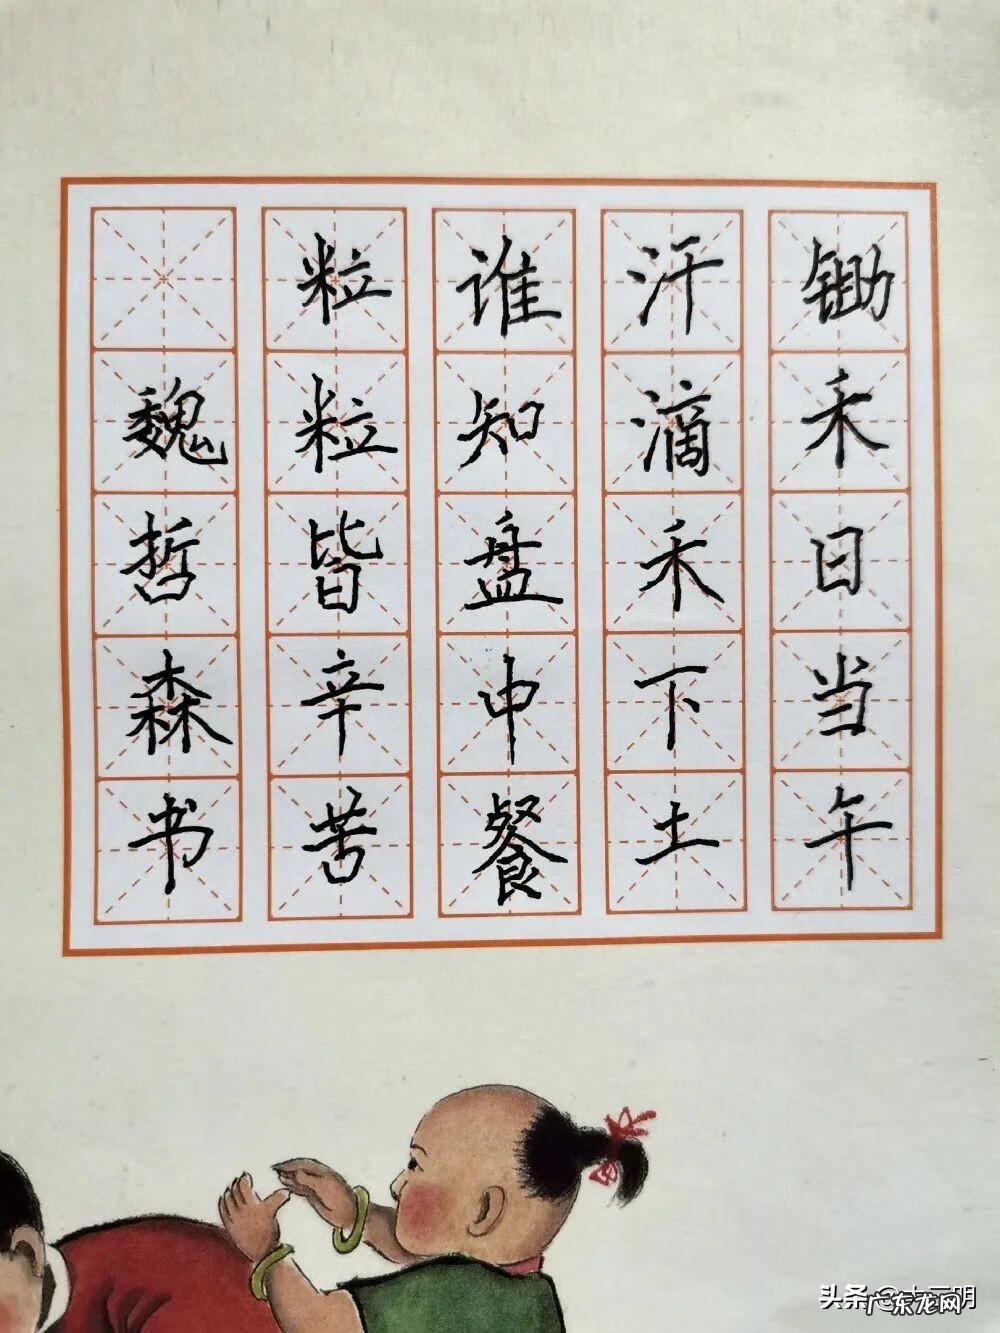 锄禾日当午
汗滴禾下土
谁知盘中餐
粒粒皆辛苦
魏哲森书
头条
广东龙网